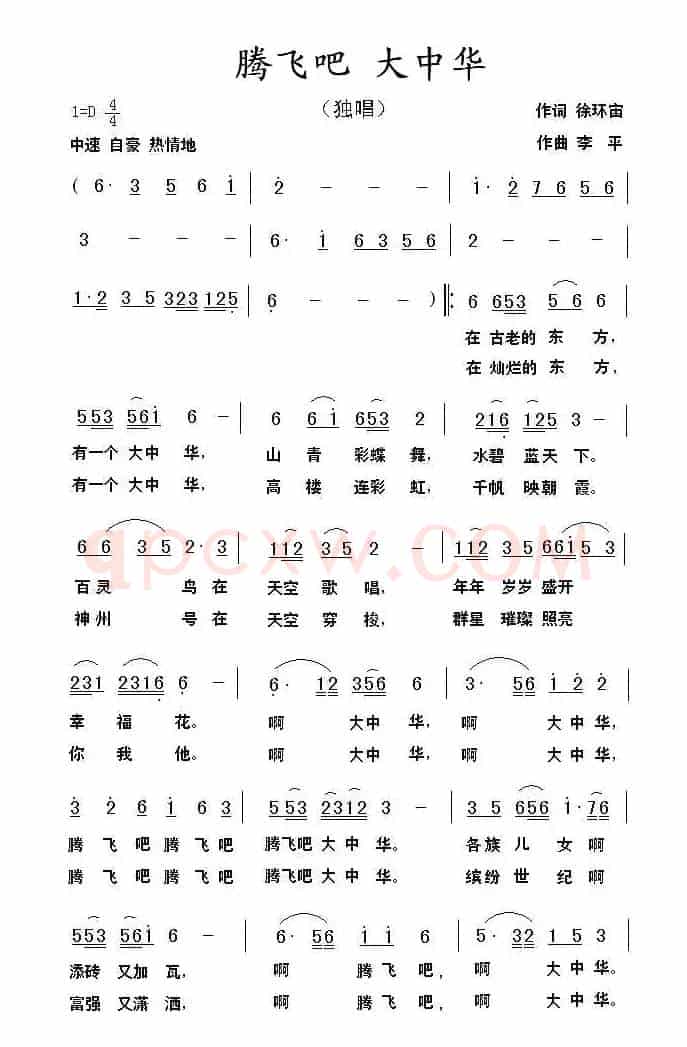 腾飞吧 大中华
（独唱）
1=D 4/4
作词 徐环宙
中速 自豪 热情地
作曲 李 平
( 6· 3 5 6 i | 2 － － － | i· 2 7 6 5 6 |
3 － － － | 6· i 6 3 5 6 | 2 － － － |
1·2 3 5 323 125 | 6 － － － ) ‖: 6 653 5 6 6 |
在 古老的 东 方，
在 灿烂的 东 方，
553 56i 6 － | 6 6 i 653 2 | 216 125 3 － |
有一个 大中 华， 山 青 彩蝶 舞， 水碧 蓝天 下。
有一个 大中 华， 高 楼 连彩 虹， 千帆 映朝 霞。
qpcxw.com
6 6 3 5 2·3 | 112 3 5 2 － | 112 3 5 66i5 3 |
百灵 鸟在 天空 歌 唱， 年年 岁岁 盛开
神州 号在 天空 穿 梭， 群星 璀璨 照亮
231 2316 6 － | 6· 12 356 6 | 3· 56 i 2 2 |
幸 福 花。 啊 大中 华， 啊 大中华，
你 我 他。 啊 大中 华， 啊 大中华，
3 2 6 i 6 3 | 553 2312 3 － | 3 5 656 i·76 |
腾 飞 吧 腾 飞 吧 腾飞吧 大中 华。 各族 儿 女啊
腾 飞 吧 腾 飞 吧 腾飞吧 大中 华。 缤纷 世 纪啊
553 56i 6 － | 6· 56 i i 6 | 5· 32 1 5 3 |
添砖 又加 瓦， 啊 腾 飞 吧， 啊 大 中 华。
富强 又潇 洒， 啊 腾 飞 吧， 啊 大 中 华。